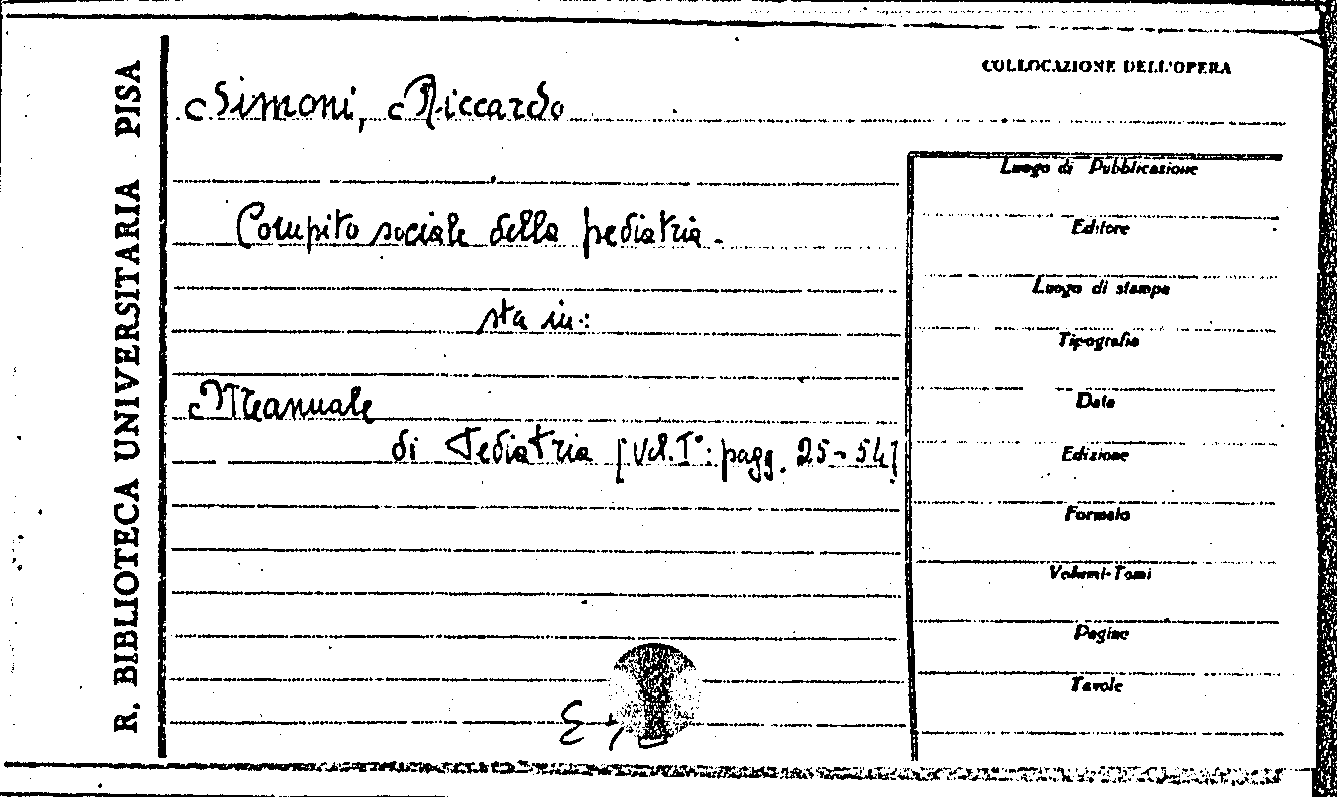 R. BIBLIOTECA UNIVERSITARIA PISA
COLLOCAZIONE DELL'OPERA
Simoni, Riccardo
Compito sociale della pediatria.
sta in:
Manuale
di Pediatria [Vol. I°: pagg. 25-54]
Luogo di Pubblicazione
Editore
Luogo di stampa
Tipografia
Data
Edizione
Formato
Volumi-Tomi
Pagine
Tavole